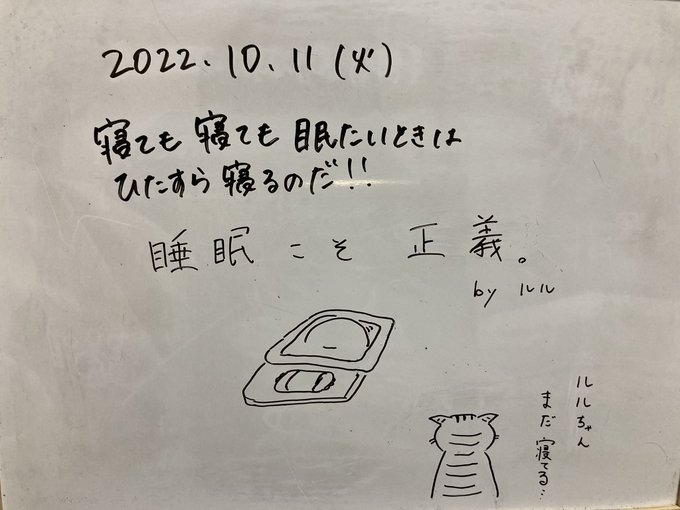 2022.10.11(火)
寝ても寝ても眠たいときは
ひたすら寝るのだ!!
睡眠こそ正義。
by ルル
ルルちゃん
まだ寝てる…